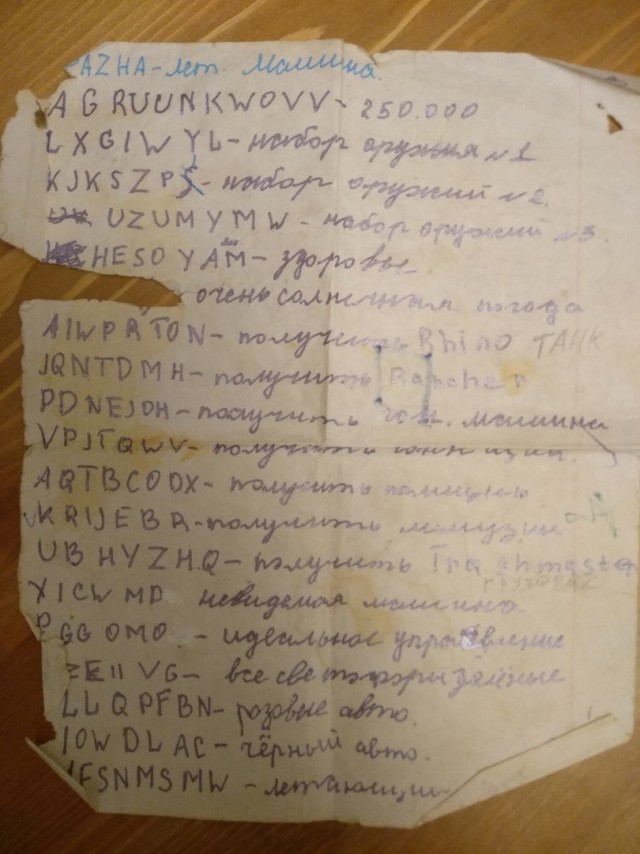 AZHA - лет. машина.
AGRUUNKWOVV - 250.000
LXGIWYL - набор оружия №1
KJKSZPJ - набор оружий №2.
UZUMYMW - набор оружий №3.
HESOYAM - здоровье
очень солнечная погода
AIWPRTON - получить Rhino ТАНК
JQNTDMH - получить Rancher
PDNEJOH - получить гон. машина
VPJTQWV - получить
AQTBCODX - получить
KRIJEBR - получить
UBHYZHQ - получить Trashmaster
грузовик
XICWMD невидемая машина
PGGOMO. - идеальное управление
ZEIIVG - все светофори зелёные
LLQPFBN - розовые авто.
IOWDLAC - чёрный авто.
FSNMSMW - летающии